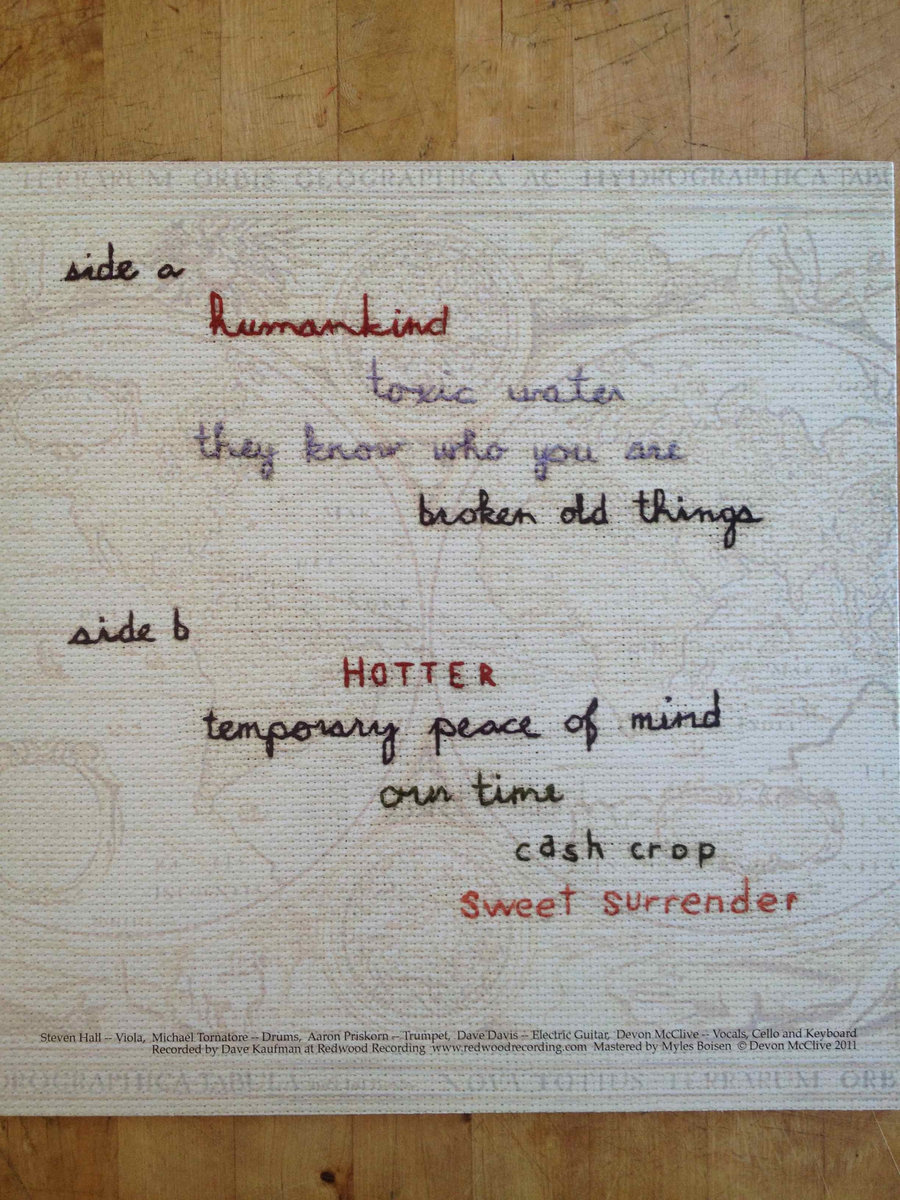 TERRARUM ORBIS GEOGRAPHICA AC HYDROGRAPHICA TABU
side a
humankind
toxic water
they know who you are
broken old things
side b
HOTTER
temporary peace of mind
our time
cash crop
sweet surrender
Steven Hall -- Viola, Michael Tornatore -- Drums, Aaron Priskorn -- Trumpet, Dave Davis -- Electric Guitar, Devon McClive -- Vocals, Cello and Keyboard
Recorded by Dave Kaufman at Redwood Recording www.redwoodrecording.com Mastered by Myles Boisen © Devon McClive 2011
NOVA TOTIUS TERRARUM ORB